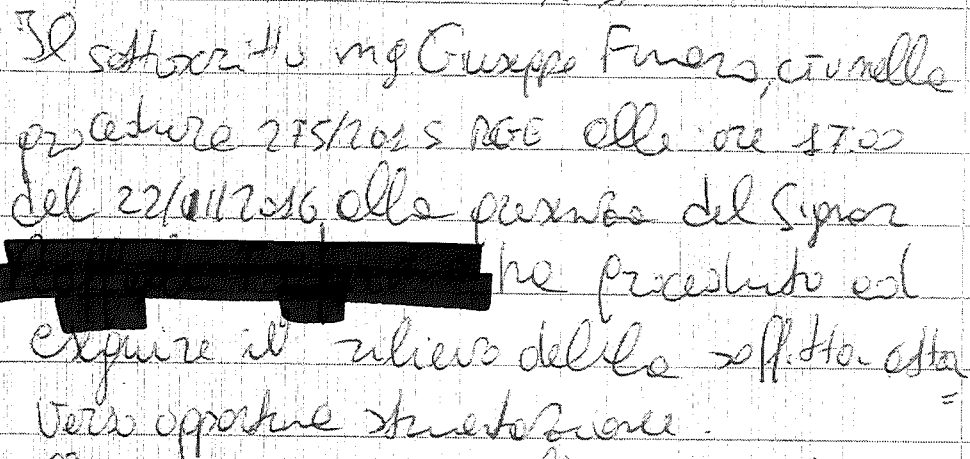 Il sottoscritto ing Giuseppe Funaro, ctu nella
procedura 275/2015 RGE alle ore 17:00
del 22/01/2016, alla presenza del Signor
ha proceduto ad
eseguire il rilievo della soffitta attra
verso opportuna strumentazione.